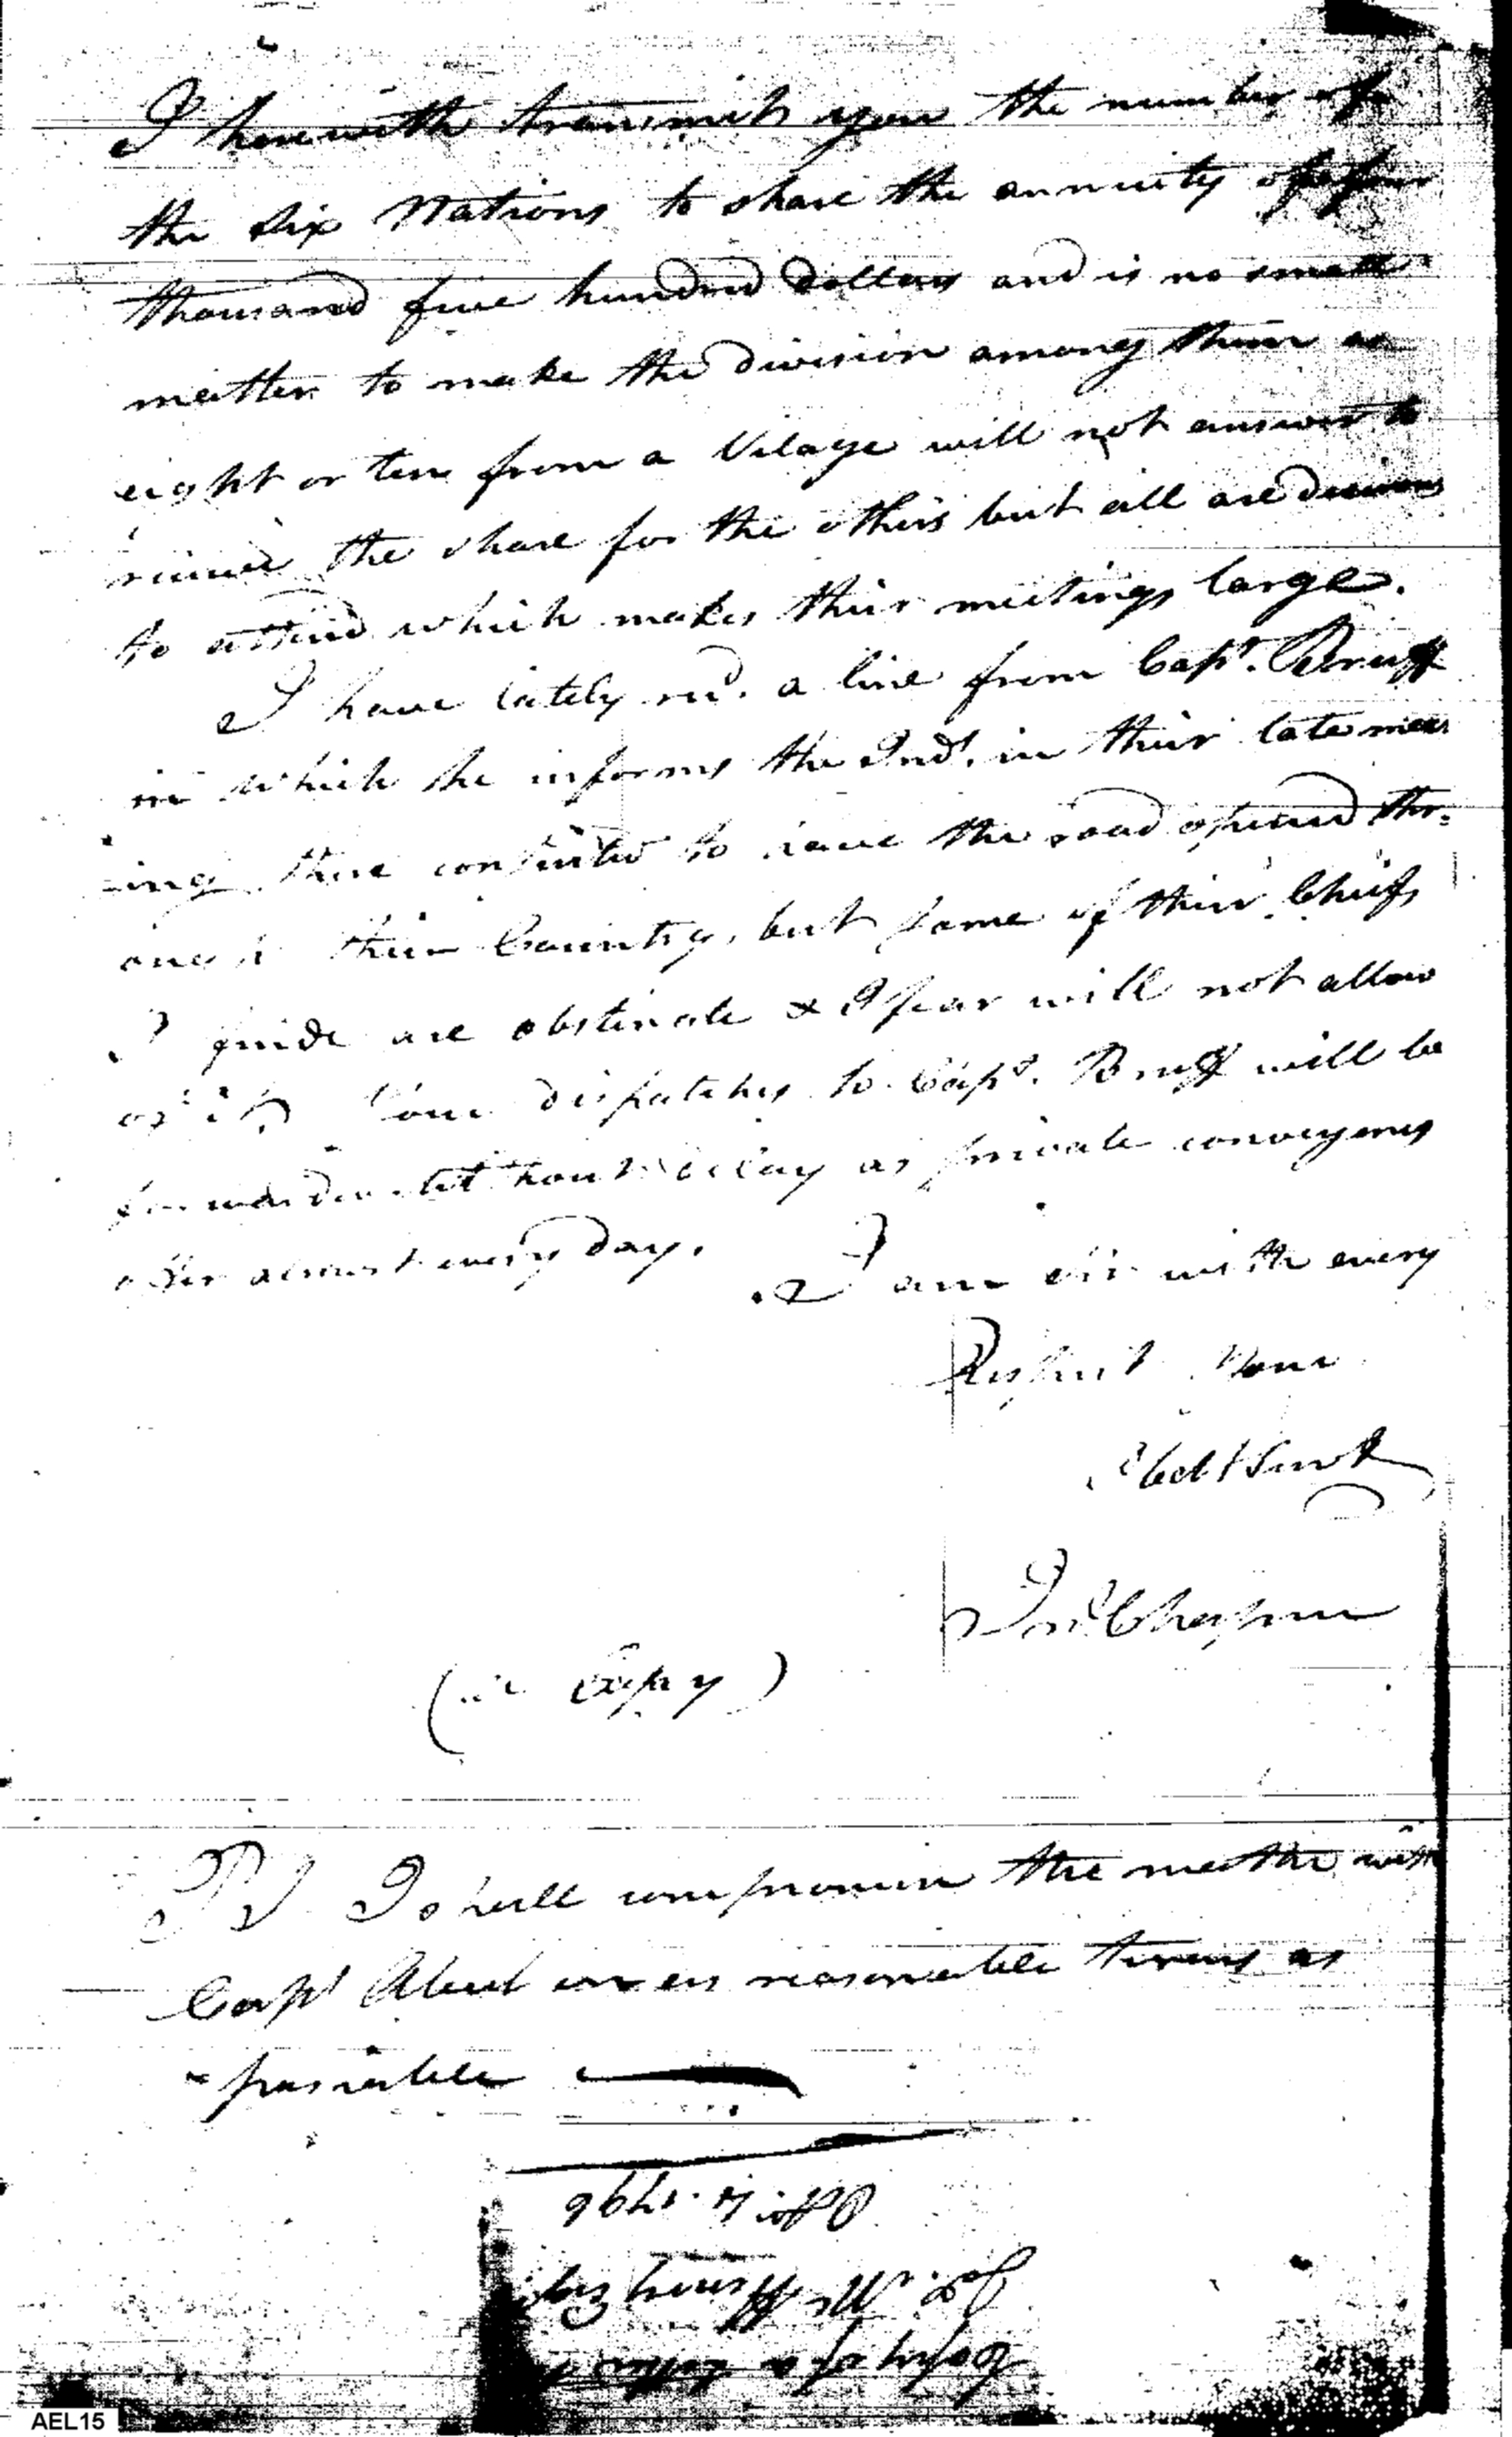 I herewith transmit you the number of
the Six Nations to share the annuity of four
thousand five hundred dollars and is no small
matter to make the division among them as
eight or ten from a Vilage will not answer to
the share for the others but all are
to attend which makes their meetings large.
I have lately recd. a line from Capt. Bruff
in which he informs the Inds. in their late mee
-ing there consented to have the road opened thr-
ough their Country, but some of their Chiefs
I find are obstinate & I fear will not allow
of it. Your dispatches to Capt. Bruff will be
forwarded without delay as private conveyences
offer almost every day.
I am sir with every
Respect Your
Obdt Servt
Isrl Chapin
(a Copy)
PS I shall compromise the matter with
Capt Abeel on as reasonable terms as
possible
Copy of a letter
Jas. McHenry Esqr
1796
AEL15